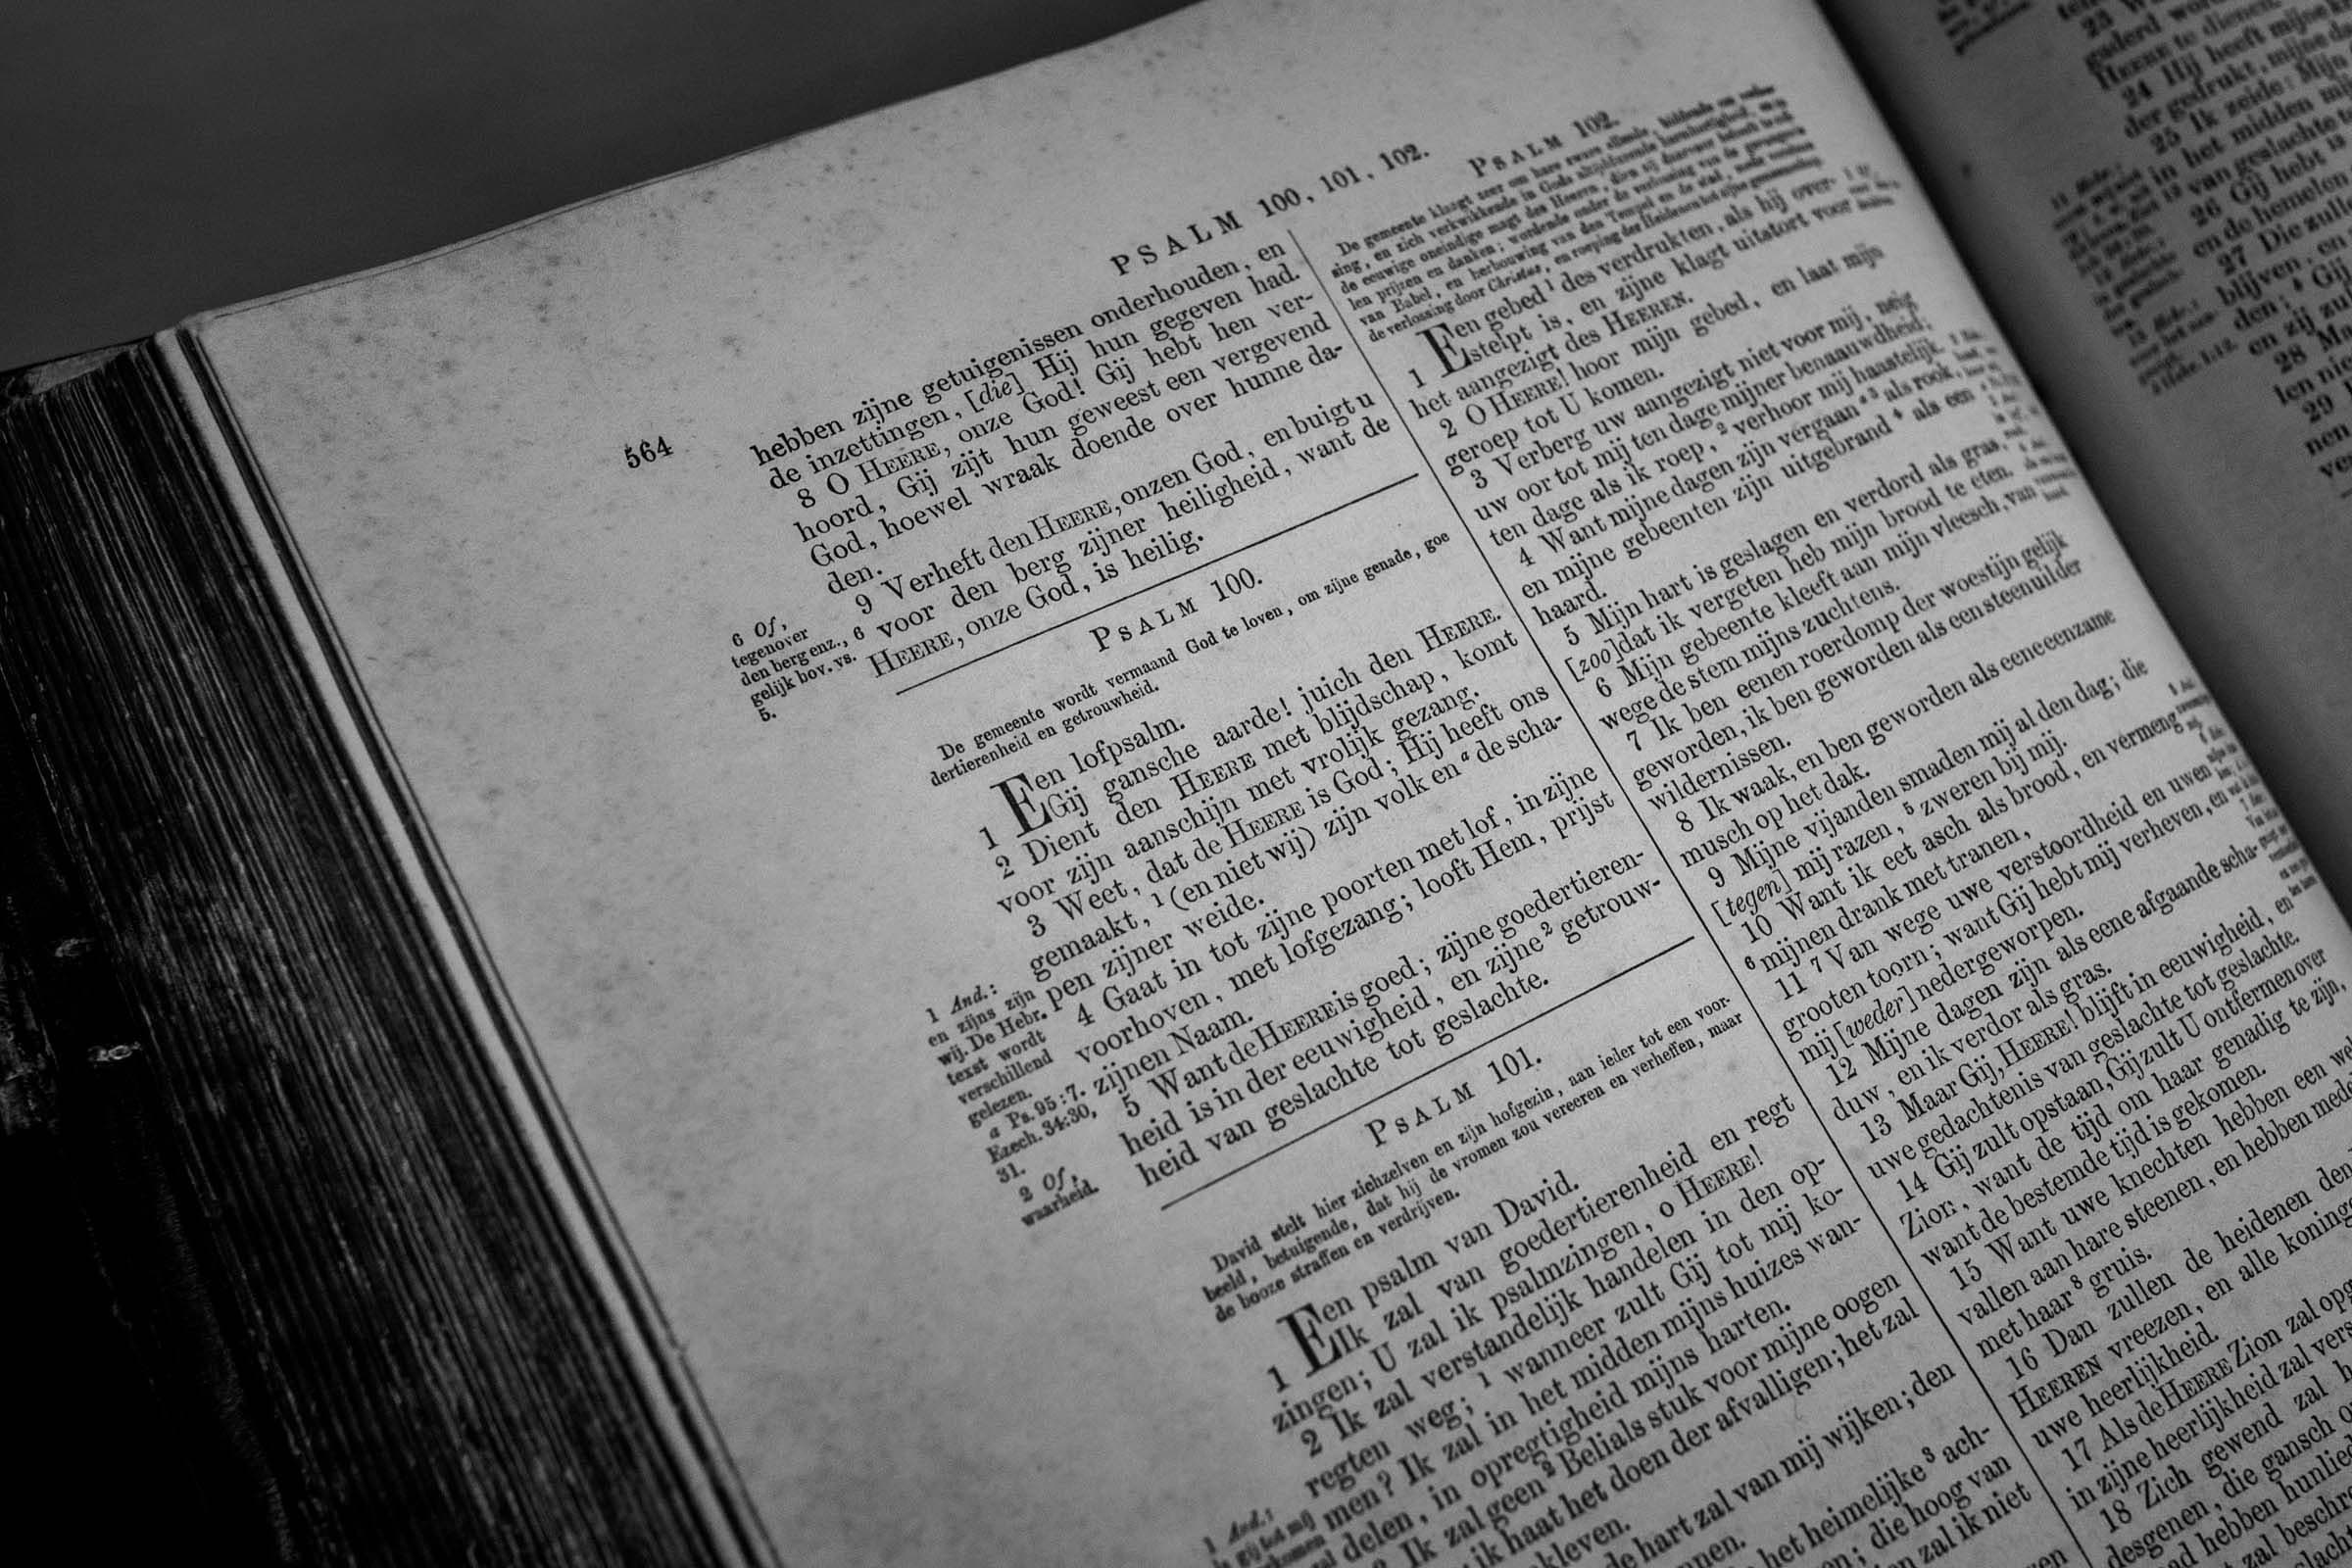 564
PSALM 100, 101, 102.
hebben zijne getuigenissen onderhouden, en
de inzettingen, [die] Hij hun gegeven had.
8 O HEERE, onze God! Gij hebt hen ver-
hoord, Gij zijt hun geweest een vergevend
God, hoewel wraak doende over hunne da-
den.
9 Verheft den HEERE, onzen God, en buigt u
6 voor den berg zijner heiligheid, want de
HEERE, onze God, is heilig.
6 Of,
tegenover
den berg enz.,
gelijk bov. vs.
5.
PSALM 100.
De gemeente wordt vermaand God te loven, om zijne genade, goe
dertierenheid en getrouwheid.
1 Een lofpsalm.
Gij gansche aarde! juich den HEERE.
2 Dient den HEERE met blijdschap, komt
voor zijn aanschijn met vrolijk gezang.
3 Weet, dat de HEERE is God; Hij heeft ons
gemaakt, 1 (en niet wij) zijn volk en a de scha-
pen zijner weide.
4 Gaat in tot zijne poorten met lof, in zijne
voorhoven, met lofgezang; looft Hem, prijst
zijnen Naam.
5 Want de HEERE is goed; zijne goedertieren-
heid is in der eeuwigheid, en zijne 2 getrouw-
heid van geslachte tot geslachte.
1 And.:
en zijns zijn
wij. De Hebr.
text wordt
verschillend
gelezen.
a Ps. 95:7.
Ezech. 34:30,
31.
2 Of,
waarheid.
PSALM 101.
David stelt hier zichzelven en zijn hofgezin, aan ieder tot een voor-
beeld, betuigende, dat hij de vromen zou vereeren en verheffen, maar
de booze straffen en verdrijven.
1 Een psalm van David.
Ik zal van goedertierenheid en regt
zingen; U zal ik psalmzingen, o HEERE!
2 Ik zal verstandelijk handelen in den op-
regten weg; 1 wanneer zult Gij tot mij ko-
men? Ik zal in het midden mijns huizes wan-
delen, in opregtigheid mijns harten.
Ik zal geen 2 Belials stuk voor mijne oogen
ik haat het doen der afvalligen; het zal
kleven.
hart zal van mij wijken; den
het heimelijke 3 ach-
die hoog van
zal ik niet
1 And.:
PSALM 102.
De gemeente klaagt zeer om hare zware ellende, biddende om verlos-
sing, en zich verkwikkende in Gods altijddurende
de eeuwige oneindige magt des Heeren,
len prijzen en danken; wordende onder de verlossing van de gemeente
van Babel, en herbouwing van den Tempel en de stad,
de verlossing door Christus, en roeping der Heidenen
1 Een gebed 1 des verdrukten, als hij over-
stelpt is, en zijne klagt uitstort voor
het aangezigt des HEEREN.
2 O HEERE! hoor mijn gebed, en laat mijn
geroep tot U komen.
3 Verberg uw aangezigt niet voor mij, neig
uw oor tot mij ten dage mijner benaauwdheid;
ten dage als ik roep, 2 verhoor mij haastelijk.
4 Want mijne dagen zijn vergaan 3 als rook,
en mijne gebeenten zijn uitgebrand 4 als een
haard.
5 Mijn hart is geslagen en verdord als gras,
[zoo] dat ik vergeten heb mijn brood te eten.
6 Mijn gebeente kleeft aan mijn vleesch, van
wege de stem mijns zuchtens.
7 Ik ben eenen roerdomp der woestijn gelijk
geworden, ik ben geworden als een steenuil der
wildernissen.
8 Ik waak, en ben geworden als eene eenzame
musch op het dak.
9 Mijne vijanden smaden mij al den dag; die
[tegen] mij razen, 5 zweren bij mij.
10 Want ik eet asch als brood, en vermeng
6 mijnen drank met tranen,
11 7 Van wege uwe verstoordheid en uwen
grooten toorn; want Gij hebt mij verheven, en
mij [weder] nedergeworpen.
12 Mijne dagen zijn als eene afgaande scha-
duw, en ik verdor als gras.
13 Maar Gij, HEERE! blijft in eeuwigheid, en
uwe gedachtenis van geslachte tot geslachte.
14 Gij zult opstaan, Gij zult U ontfermen over
Zion, want de tijd om haar genadig te zijn,
want de bestemde tijd is gekomen.
15 Want uwe knechten hebben een wel
vallen aan hare steenen, en hebben mede
met haar 8 gruis.
16 Dan zullen de heidenen den
HEEREN vreezen, en alle koning
uwe heerlijkheid.
17 Als de HEERE Zion zal opg
in zijne heerlijkheid zal vers
18 Zich gewend zal h
desgenen, die gansch o
hebben hunlied
zal beschr
gaderd
HEERE te dienen.
24 Hij heeft mijne
der gedrukt, mijne
25 Ik zeide: Mijn
in het midden
van geslachte
26 Gij hebt
en de hemelen
27 Die zull
blijven,
den;
en zij
28 M
len
29
nen